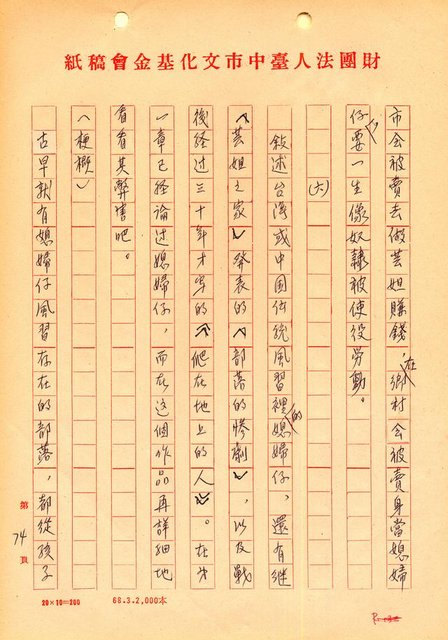 財團法人臺中市文化基金會稿紙
市会被賣去做芸妲賺錢,在鄉村会被賣身當媳婦
仔,要一生像奴隸被使役労動。
(六)
敍述台湾或中国伝統風習裡的媳婦仔,還有继
《芸妲之家》発表的《部落的惨劇》,以及戰
後经过三十年才写的《爬在地上的人》。在
一章已经論过媳婦仔,而在这個作品再詳細地
看看其弊害吧。
(梗概)
古早就有媳婦仔風習存在的部落,都從孩子
第74頁
20×10=200
68.3.2,000本